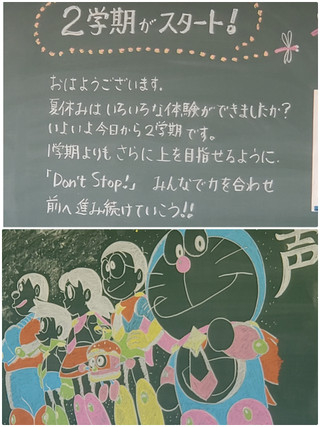 2学期がスタート!
おはようございます.
夏休みはいろいろな体験ができましたか?
いよいよ今日から2学期です。
1学期よりもさらに上を目指せるように.
「Don't Stop!」 みんなで力を合わせ
前へ進み続けていこう!!
声